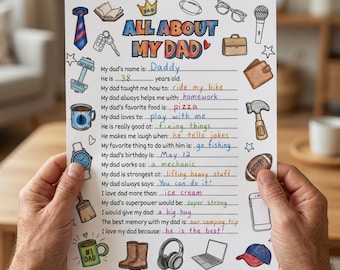 ALL ABOUT
MY DAD
My dad's name is: Daddy
He is 38 years old.
My dad taught me how to: ride my bike
My dad always helps me with: homework
My dad's favorite food is: pizza
My dad loves to: play with me
He is really good at: fixing things
He makes me laugh when: he tells jokes
My favorite thing to do with him is: go fishing
My dad's birthday is: May 12
My dad works as: a mechanic
My dad is strongest at: lifting heavy stuff
My dad always says: You can do it!
I love dad more than: ice cream
My dad's superpower would be: super strong
I would give my dad: a big hug
The best memory with my dad is: our camping trip
I love my dad because: he is the best!
#1
DAD